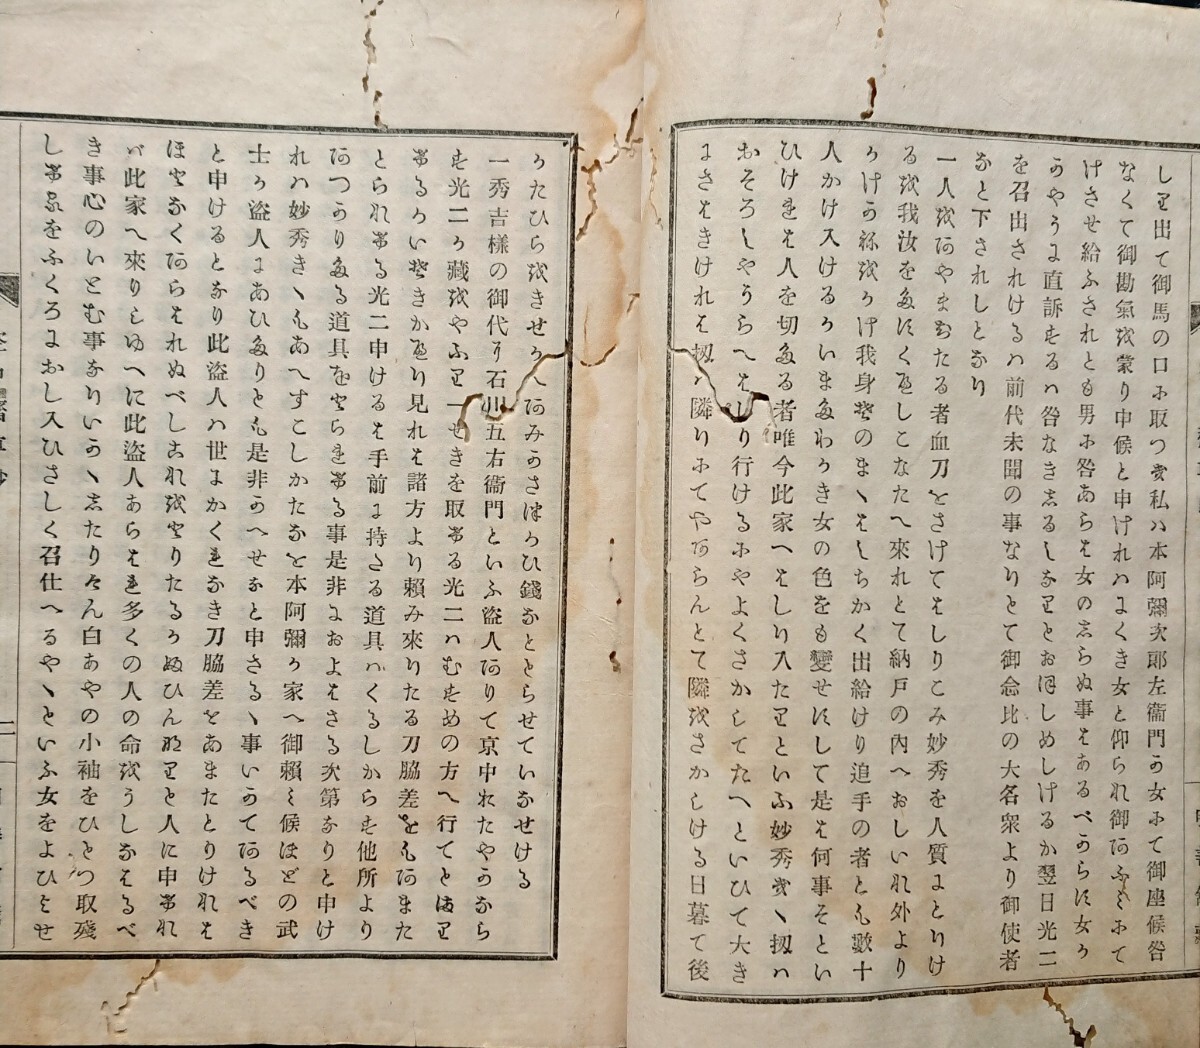 しり出て御馬の口に取つき私ハ本阿彌次郎左衞門の女にて御座候咎
なくて御勘氣を蒙り申候と申けれハにくき女と仰られ御あふミにて
けさせ給ふされとも男に咎あらは女のしらぬ事はあるべからす女か
かやうに直訴するハ咎なきしるしなりとおほしめしけるか翌日光二
を召出されけるハ前代未聞の事なりとて御念比の大名衆より御使者
なと下されしとなり
一人をあやまちたる者血刀をさけてはしりこみ妙秀を人質にとりけ
るを我汝をたすくへしこなたへ來れとて納戸の內へおしいれ外より
かけかねをかけ我身そのまゝはしちかく出給けり追手の者とも數十
人かけ入けるかいまたわかき女の色をも變せすして是は何事そとい
ひけれは人を切たる者唯今此家へはしり入たりといふ妙秀きゝ扨ハ
おそろしやうらへはしり行けるにやよくさかしてたへといひて大き
にさはきけれは扨ハ隣りにてやあらんとて隣をさかしける日暮て後
かたひらをきせかへあみかさはかひ錢なととらせていなせける
一秀吉様の御代に石川五右衞門といふ盜人ありて京中おたやかなら
す光二か藏をやふり一せきを取ける光二ハむすめの方へ行てとまり
けるかいそきかへり見れは諸方より賴み來りたる刀脇差ともあまた
とられける光二申けるは手前に持たる道具ハくるしからす他所より
あつかりたる道具をとられける事是非におよはさる次第なりと申け
れハ妙秀きゝもあへすこしかたなを本阿彌か家へ御賴ミ候ほどの武
士か盜人にあひたりとも是非かへせなと申さるゝ事いかてあるべき
と申けるとなり此盜人ハ世にかくれなき刀脇差をあまたとりけれは
ほとなくあらはれぬべしこれをとりたるかぬひんなりと人に申けれ
ハ此家へ來りしゆへに此盜人あらはれ多くの人の命をうしなはるべ
き事心のいとむ事なりいかゝしたりけん白あやの小袖をひとつ取殘
しけるをふくろにおし入ひさしく召仕へるやゝといふ女をよひよせ